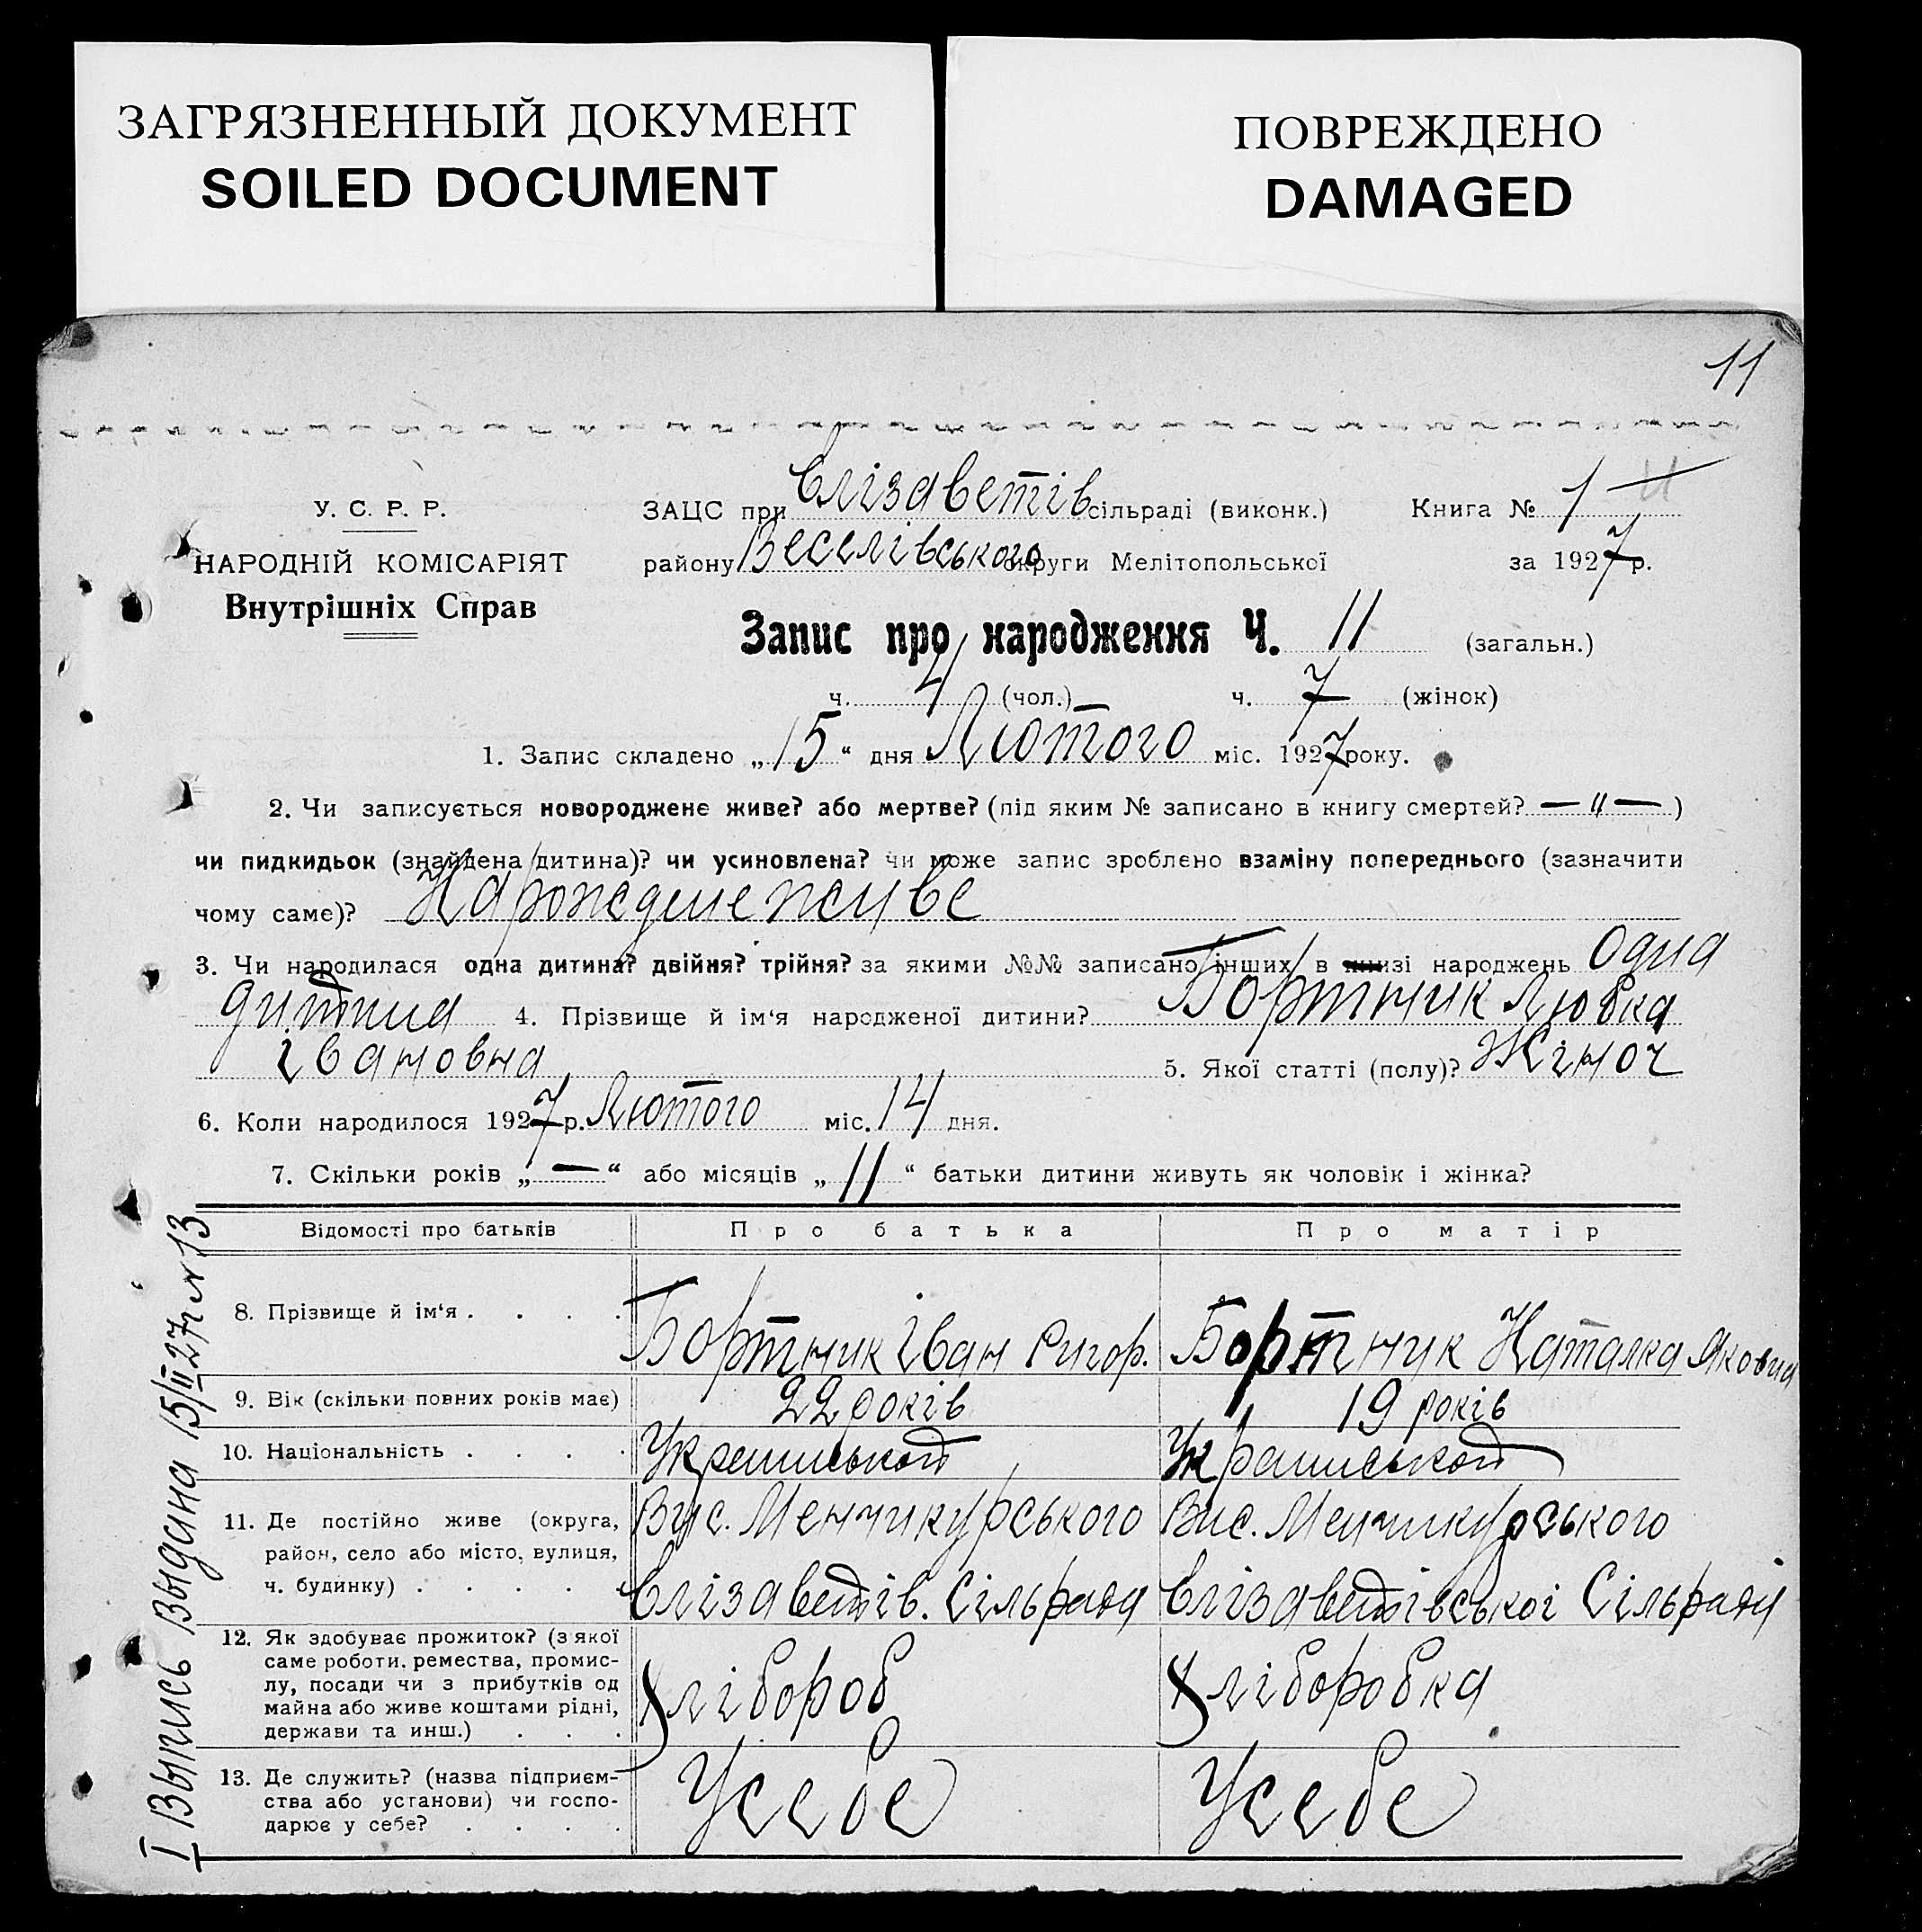 ЗАГРЯЗНЕННЫЙ ДОКУМЕНТ
SOILED DOCUMENT
ПОВРЕЖДЕНО
DAMAGED
11
У. С. Р. Р.
НАРОДНІЙ КОМІСАРІЯТ
Внутрішніх Справ
ЗАЦС при Єлізаветів сільраді (виконк.) Книга № 1
району Веселівського округи Мелітопольської за 1927 р.
Запис про народження Ч. 11 (загальн.)
ч. 4 (чол.) ч. 7 (жінок)
1. Запис складено „15“ дня Лютого міс. 1927 року.
2. Чи записується новороджене живе? або мертве? (під яким № записано в книгу смертей? — " — )
чи пидкидьок (знайдена дитина)? чи усиновлена? чи може запис зроблено взаміну попереднього (зазначити
чому саме)? Нарождене живе
3. Чи народилася одна дитина? двійня? трійня? за якими №№ записано інших в книзі народжень Одна
дитина 4. Прізвище й ім'я народженої дитини? Бортник Любка
івановна 5. Якої статті (полу)? Жіноч
6. Коли народилося 1927 р. Лютого міс. 14 дня.
7. Скільки років „—“ або місяців „11“ батьки дитини живуть як чоловік і жінка?
Відомості про батьків Про батька Про матір
8. Прізвище й ім'я . . . . Бортник іван Григор. Бортник Наталка Яковна
9. Вік (скільки повних років має) 22 років 19 років
10. Національність . . . . Української Української
11. Де постійно живе (округа, Вис. Менчикурського Вис. Менчикурського
район, село або місто, вулиця,
ч. будинку) . . . . . Єлізаветів. Сільради Єлізаветівської Сільради
12. Як здобуває прожиток? (з якої
саме роботи, ремества, промис-
лу, посади чи з прибутків од Хлібороб Хліборобка
майна або живе коштами рідні,
держави та инш.) . . .
13. Де служить? (назва підприєм-
ства або установи) чи госпо- Усебе Усебе
дарює у себе? . . . .
I Выпись Выдана 15/II 27г N 13